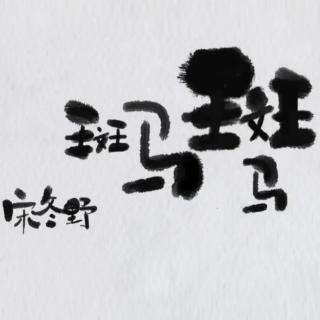 斑马斑马
宋冬野